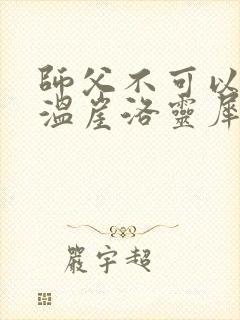 師父不可以
溫崖洛靈犀
嚴宇超